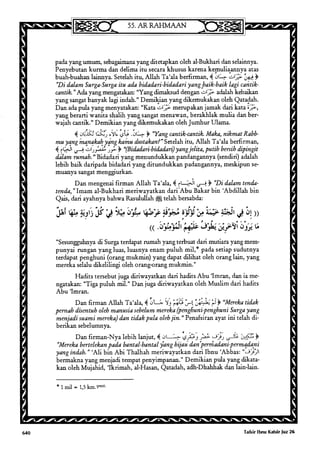 55. AR RAHMAAN
pada yang umum, sebagaimana yang ditetapkan oleh al-Bukhari dan selainnya.
Penyebutan kurma dan delima itu secara khusus karena kemuliaannya atas
buah-buahan lainnya. Setelah itu, Allah Ta'ala berfirman, ﴾ فِيهِنَّ خَيْرَاتٌ حِسَانٌ ﴿
"Di dalam Surga-Surga itu ada bidadari-bidadari yang baik-baik lagi cantik-
cantik." Ada yang mengatakan: "Yang dimaksud dengan خَيْرَاتٌ adalah kebaikan
yang sangat banyak lagi indah." Demikian yang dikemukakan oleh Qatadah.
Dan ada pula yang menyatakan: "Kata خَيْرَاتٌ merupakan jamak dari kata خَيْرَةٌ,
yang berarti wanita shalih yang sangat menawan, berakhlak mulia dan ber-
wajah cantik." Demikian yang dikemukakan oleh Jumhur Ulama.
"Yang cantik-cantik. Maka, nikmat Rabb-
mu yang manakah yang kamu dustakan?" Setelah itu, Allah Ta'ala berfirman,
﴾ حُورٌ مَّقْصُورَاتٌ فِي الْخِيَامِ ﴿ "(Bidadari-bidadari) yang jelita, putih bersih dipingit
dalam rumah." Bidadari yang menundukkan pandangannya (sendiri) adalah
lebih baik daripada bidadari yang ditundukkan pandangannya, meskipun se-
muanya sangat menggiurkan.
Dan mengenai firman Allah Ta'ala, ﴾ فِي الْخِيَامِ ﴿ "Di dalam tenda-
tenda," Imam al-Bukhari meriwayatkan dari Abu Bakar bin 'Abdillah bin
Qais, dari ayahnya bahwa Rasulullah ﷺ telah bersabda:
(( إِنَّ فِي الْجَنَّةِ خَيْمَةً مِنْ لُؤْلُؤَةٍ مُجَوَّفَةٍ عَرْضُهَا سِتُّونَ مِيلاً فِي كُلِّ زَاوِيَةٍ مِنْهَا أَهْلٌ
مَا يَرَوْنَ الْآخَرِينَ يَطُوفُ عَلَيْهِمُ الْمُؤْمِنُونَ. ))
"Sesungguhnya di Surga terdapat rumah yang terbuat dari mutiara yang mem-
punyai rungan yang luas, luasnya enam puluh mil,* pada setiap sudutnya
terdapat penghuni (orang mukmin) yang dapat dilihat oleh orang lain, yang
mereka selalu dikelilingi oleh orang-orang mukmin."
Hadits tersebut juga diriwayatkan dari hadits Abu 'Imran, dan ia me-
ngatakan: "Tiga puluh mil." Dan juga diriwayatkan oleh Muslim dari hadits
Abu 'Imran.
Dan firman Allah Ta'ala, ﴾ لَمْ يَطْمِثْهُنَّ إِنسٌ قَبْلَهُمْ وَلَا جَانٌّ ﴿ "Mereka tidak
pernah disentuh oleh manusia sebelum mereka (penghuni-penghuni Surga yang
menjadi suami mereka) dan tidak pula oleh jin." Penafsiran ayat ini telah di-
berikan sebelumnya.
Dan firman-Nya lebih lanjut, ﴾ مُتَّكِئِينَ عَلَى رَفْرَفٍ خُضْرٍ وَعَبْقَرِيٍّ حِسَانٍ ﴿
"Mereka bertelekan pada bantal-bantal yang hijau dan permadani-permadani
yang indah." 'Ali bin Abi Thalhah meriwayatkan dari Ibnu 'Abbas: "رَفْرَفٍ
bermakna yang menjadi tempat penyimpanan." Demikian pula yang dikata-
kan oleh Mujahid, 'Ikrimah, al-Hasan, Qatadah, adh-Dhahhak dan lain-lain.
* 1 mil = 1,5 km.
640
Tafsir Ibnu Katsir Juz 26